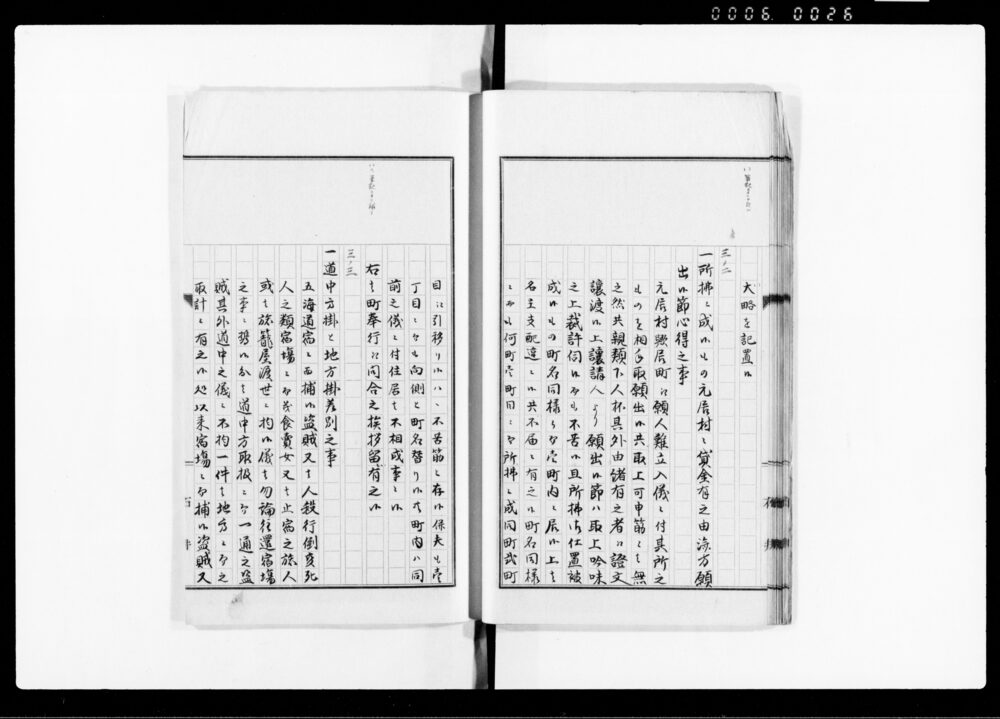 0006.0026
大略を記置候
三ノ二
一所拂ニ成候もの元居村ニ貸金有之由済方願
出候節心得之事
元居村欤居町江願人難立入儀ニ付其所之
ものを相手取願出候共取上可申筋ニ無
之然共親類下人杯其外由緒有之者江證文
譲渡候上譲請人より願出候節ハ取上吟味
之上裁許伺候而も不苦候且所拂御仕置被
成候もの町名同様ニ而壱町内ニ居候上は
名主支配違ニ候共不届ニ有之候町名同様
ニ而も何町壱町目ニ而所拂ニ成同町弐町
目江引移り候ハヽ不苦筋ニ存候併夫も壱
丁目ニ而も向側と町名替り候共町内ハ同
前之儀ニ付住居は不相成事ニ候
右は町奉行江問合之挨拶留有之候
三ノ三
一道中方掛と地方掛差別之事
五海道宿ニ而捕候盗賊又は人殺行倒変死
人之類宿場ニ而茂食賣女又は止宿之旅人
或は旅籠屋渡世ニ拘候儀は勿論往還宿場
之事ニ携候分は道中方取扱ニ而一通之盗
賊其外道中之儀ニ不拘一件は地方ニ而之
取計ニ有之候処以来宿場ニ而捕候盗賊又